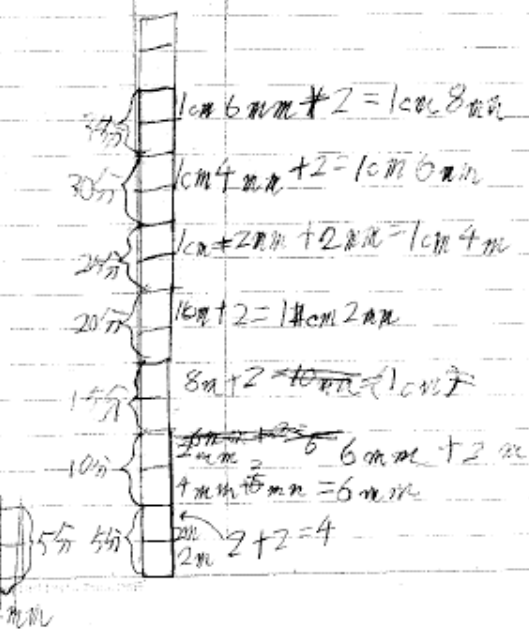 1cm 6mm + 2 = 1cm 8mm
30分 1cm 4mm + 2 = 1cm 6mm
25分 1cm + 2mm + 2mm = 1cm 4m
20分 1cm + 2 = 1cm 2mm
15分 8m + 2 = 10mm = (1cm)
2mm 6 6mm + 2m
10分 4mm + 2mm = 6mm
5分 5分 2m 2 + 2 = 4
2m
mm